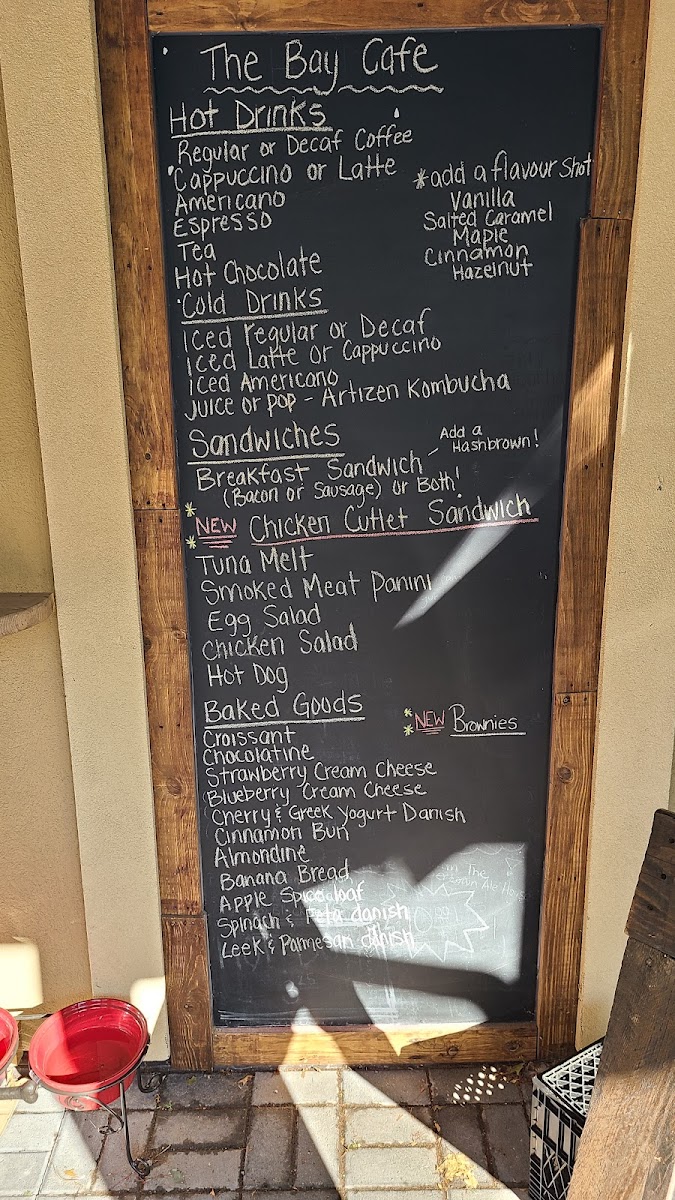 The Bay Cafe
Hot Drinks
Regular or Decaf Coffee
Cappuccino or Latte
Americano
Espresso
Tea
Hot Chocolate
*add a flavour shot
Vanilla
Salted Caramel
Maple
Cinnamon
Hazelnut
Cold Drinks
Iced regular or Decaf
Iced Latte or Cappuccino
Iced Americano
Juice or pop - Artizen Kombucha
Sandwiches
Breakfast Sandwich - Add a
Hashbrown!
(Bacon or Sausage) or Both!
** NEW Chicken Cutlet Sandwich
Tuna Melt
Smoked Meat Panini
Egg Salad
Chicken Salad
Hot Dog
Baked Goods
** NEW Brownies
Croissant
Chocolatine
Strawberry Cream Cheese
Blueberry Cream Cheese
Cherry & Greek Yogurt Danish
Cinnamon Bun
Almondine
Banana Bread
Apple Spice loaf
Spinach & Feta danish
Leek & Parmesan danish
The